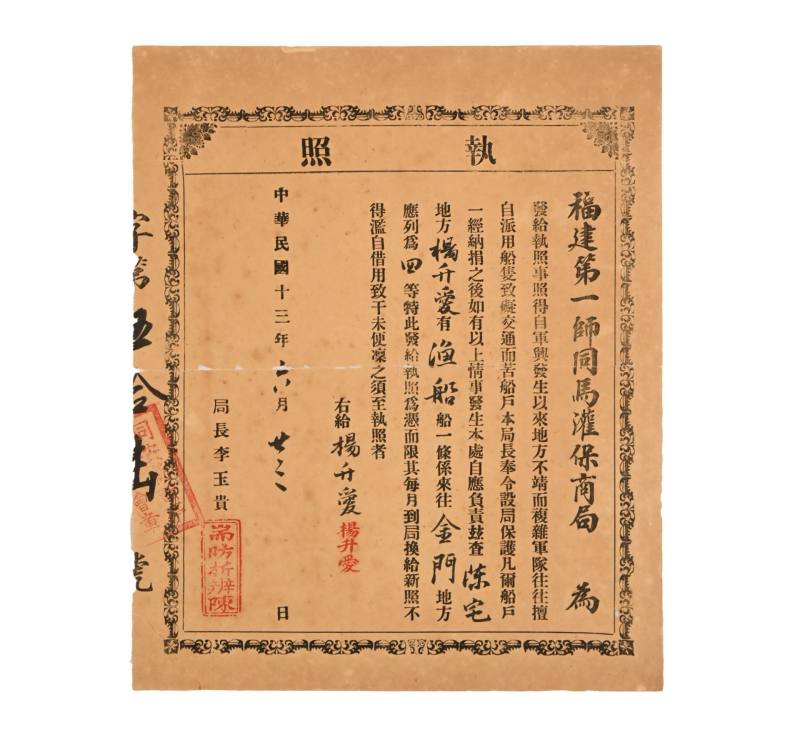 執照
福建第一師同馬灌保商局 為
發給執照事照得自軍興發生以來地方不靖而複雜軍隊往往擅
自派用船隻致礙交通而苦船戶本局長奉令設局保護凡爾船戶
一經納捐之後如有以上情事發生本處自應負責茲查 陳宅
地方 楊升愛 有 漁船 船一條係來往 金門 地方
應列為 四 等特此發給執照為憑而限其每月到局換給新照不
得濫自借用致干未便凜之須至執照者
右給 楊升愛 楊升愛
中華民國十三年 六 月 廿三 日
局長李玉貴
字第 五 號